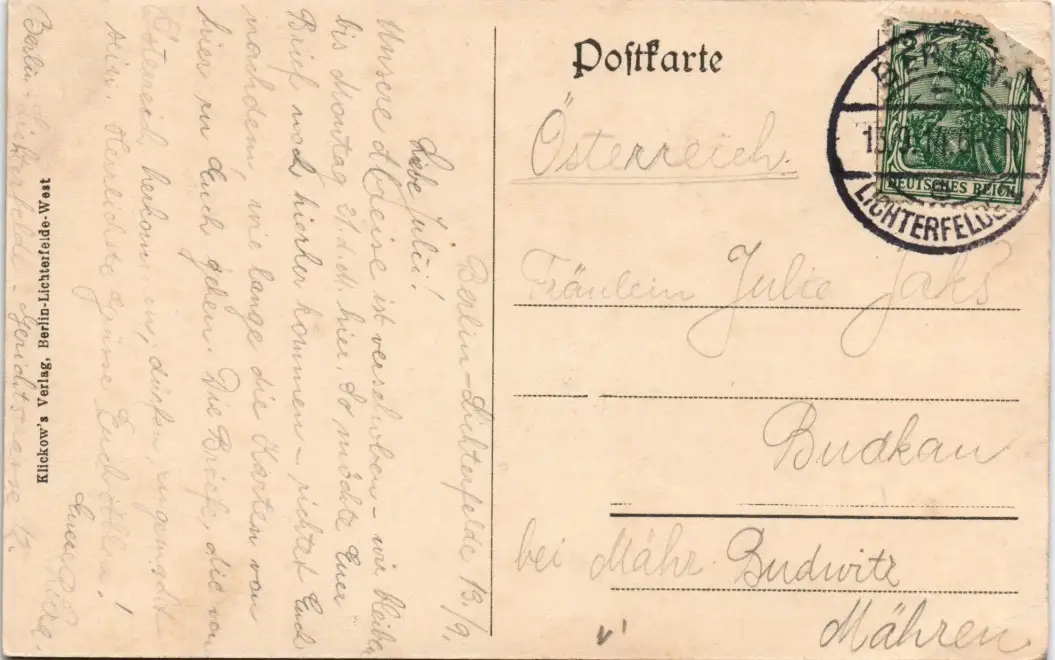 Postkarte
BERLIN
LICHTERFELDE
DEUTSCHES REICH
Österreich.
Fräulein Julie Jaks
Budkau
bei Mähr Budwitz
Mähren
Berlin-Lichterfelde 13./9.
Liebe Julii!
Unsere Abreise ist verschoben – wir bleiben
bis Montag 21. d. M. hier. So möchte Euer
Brief noch hierher kommen – richtet Euch
nachdem, wie lange die Karten von
hier zu Euch gehen. Die Briefe, die von
Österreich herkommen, dürfen zugemacht
sein. Herzlichste Grüsse Euch Allen!
Berlin-Lichterfelde-
Klickow's Verlag, Berlin-Lichterfelde-West